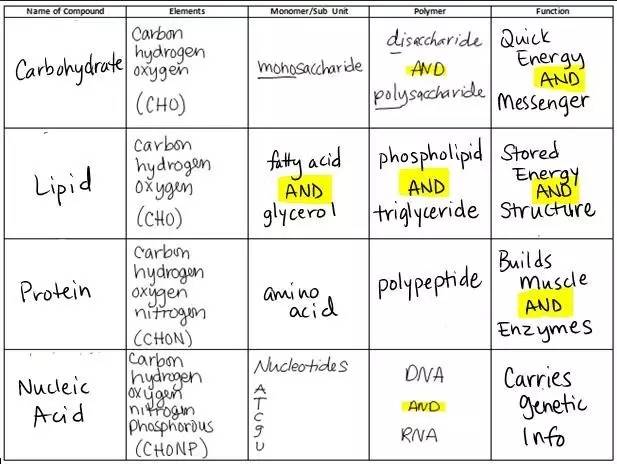 Name of Compound Elements Monomer/Sub Unit Polymer Function
Carbohydrate
Carbon
hydrogen
oxygen
(CHO)
monosaccharide
disaccharide
AND
polysaccharide
Quick
Energy
AND
Messenger
Lipid
Carbon
hydrogen
oxygen
(CHO)
fatty acid
AND
glycerol
phospholipid
AND
triglyceride
Stored
Energy
AND
Structure
Protein
Carbon
hydrogen
oxygen
nitrogen
(CHON)
amino
acid
polypeptide
Builds
Muscle
AND
Enzymes
Nucleic
Acid
Carbon
hydrogen
oxygen
nitrogen
Phosphorous
(CHONP)
Nucleotides
A
T
C
g
U
DNA
AND
RNA
Carries
genetic
Info